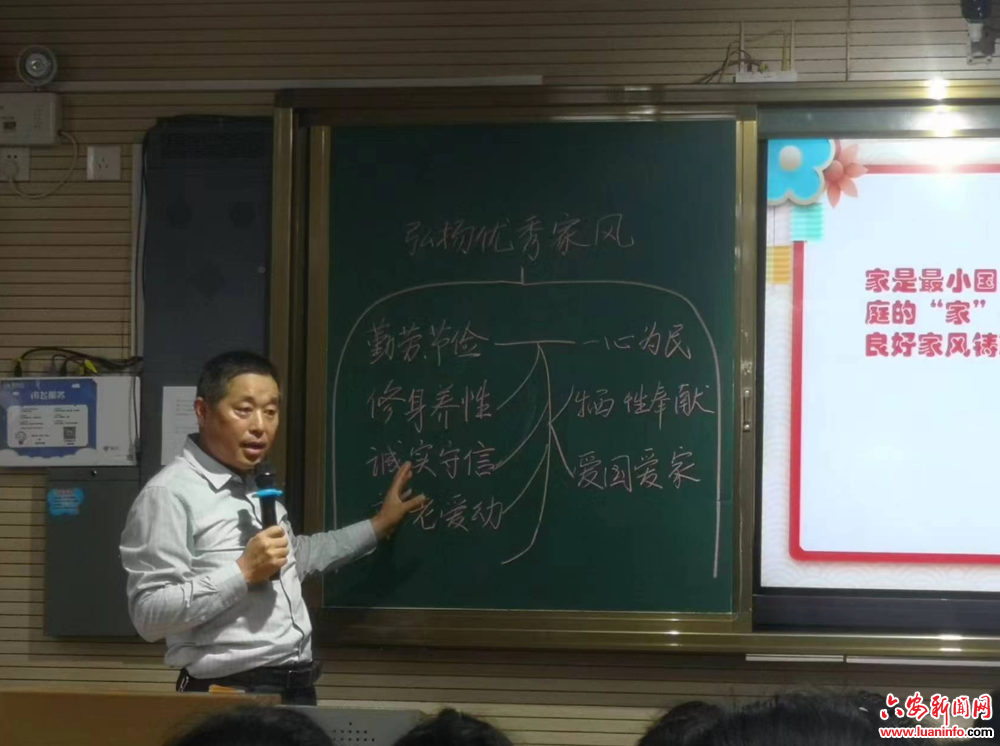 弘扬优秀家风
勤劳节俭
一心为民
修身养性
牺牲奉献
诚实守信
爱国爱家
老爱动
家是最小国
庭的“家”
良好家风铸
讯飞服务
六安新闻网
www.luaninfo.com